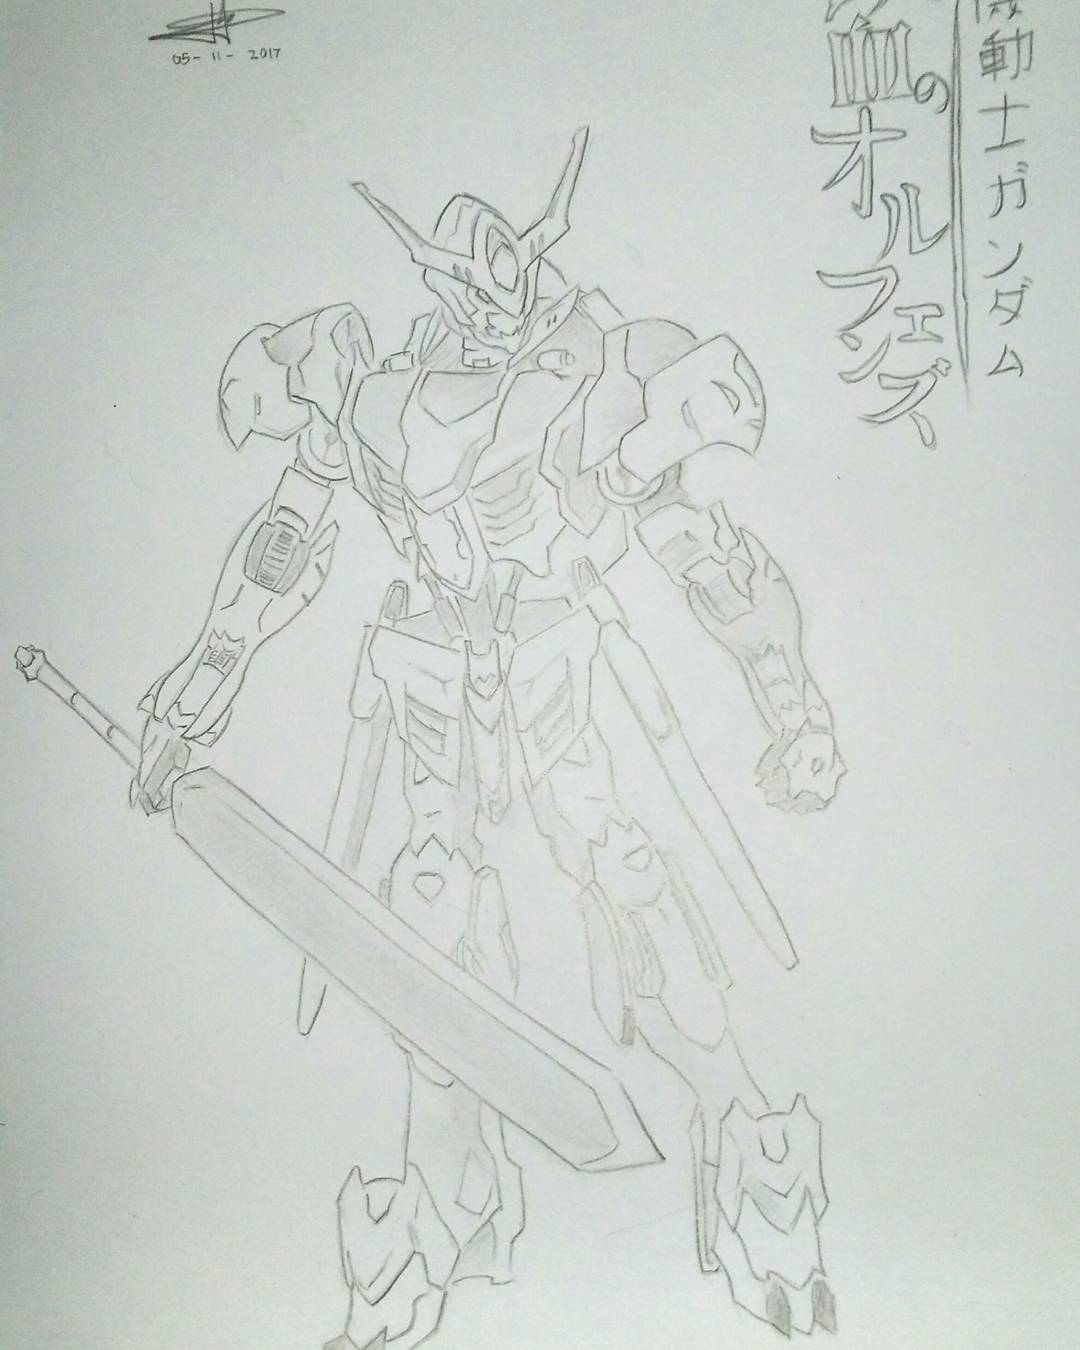 05-11-2017
機動士ガンダム
血のオルフェンズ